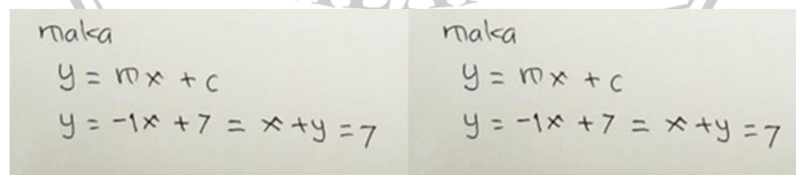 maka
y = mx + c
y = -1x + 7 = x + y = 7
maka
y = mx + c
y = -1x + 7 = x + y = 7